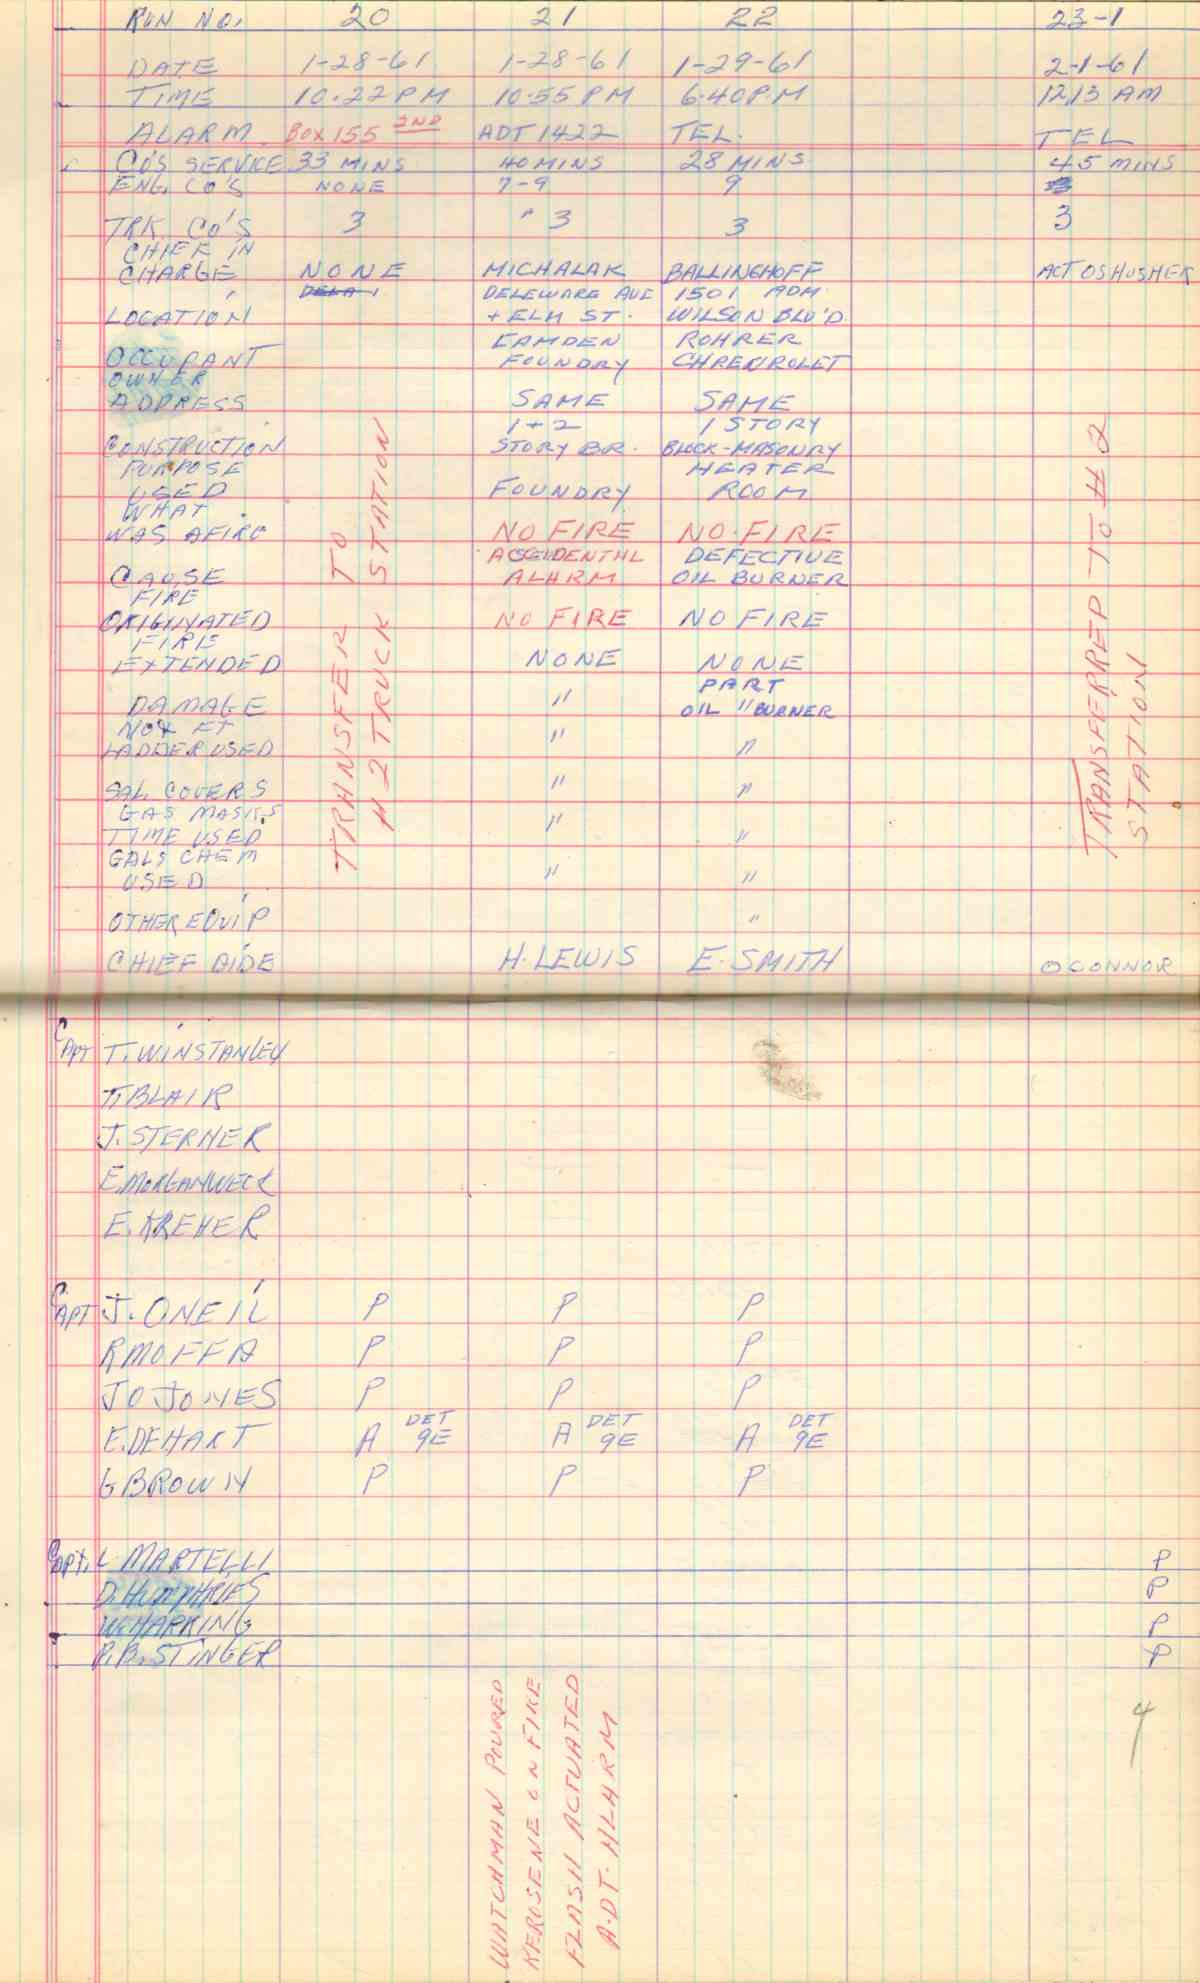 RUN NO. 20 21 22 23-1
DATE 1-28-61 1-28-61 1-29-61 2-1-61
TIME 10.22 PM 10:55 PM 6.40 P.M 12,13 AM
ALARM. BOX 155 2ND ADT 1422 TEL. TEL
CO'S SERVICE 33 MINS 40 MINS 28 MINS 45 MINS
ENG. CO'S NONE 7-9 9
TRK. CO'S 3 " 3 3 3
CHIEF IN
CHARGE NONE MICHALAK BALLINGHOFF ACT OSHUSHER
DELEWARE AVE 1501 ADM.
LOCATION + ELM ST. WILSON BLV'D
CAMDEN ROHRER
OCCUPANT FOUNDRY CHREVROLET
OWNER
ADDRESS SAME SAME
1+2 1 STORY
CONSTRUCTION STORY BR. BLOCK-MASONRY
PURPOSE HEATER
USED FOUNDRY ROOM
WHAT
WAS AFIRE NO FIRE NO.FIRE
ACCIDENTAL DEFECTIVE
CAUSE ALARM OIL BURNER
FIRE
ORIGINATED NO FIRE NO FIRE
FIRE
EXTENDED NONE NONE
PART
DAMAGE " OIL " BURNER
NO & FT
LADDER USED " "
SAL. COVERS " "
GAS MASKS "
TIME USED "
GALS CHEM
USED " "
OTHER EQUIP "
CHIEF AIDE H. LEWIS E. SMITH OCONNOR
TRANSFER TO
# 2 TRUCK STATION
TRANSFERRED TO #2
STATION
CAPT T. WINSTANLEY
T. BLAIR
J. STERNER
E. MORGANWECK
E. KREHER
CAPT J. ONEIL P P P
R MOFFA P P P
JO JONES P P P
E. DEHART A DET 9E A DET 9E A DET 9E
G BROWN P P P
CAPT. L MARTELLI P
D. HUMPHRIES P
W. HARKING P
R. B. STINGER P
WATCHMAN POURED
KEROSENE ON FIRE
FLASH ACTUATED
A.D.T. ALARM
4